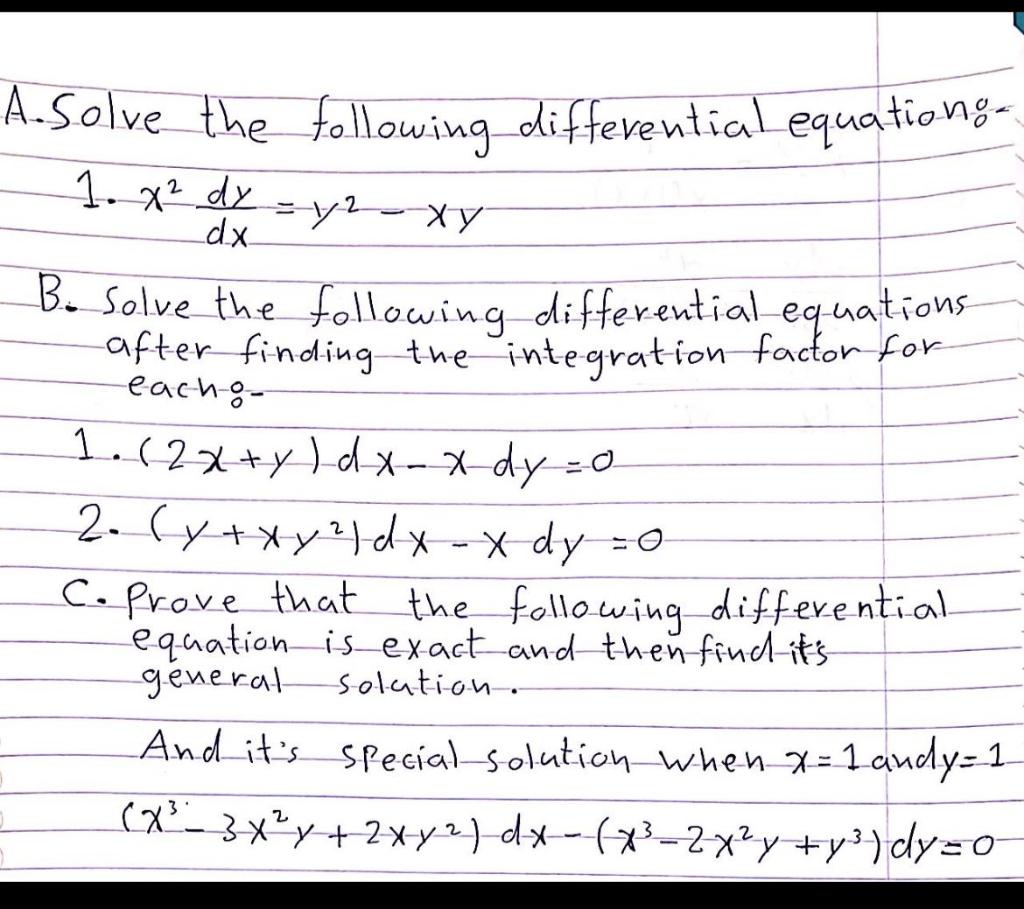 A. Solve the following differential equation:-
1. x² dy/dx = y² - xy
B. Solve the following differential equations
after finding the integration factor for
each:-
1. (2x + y) dx - x dy = 0
2. (y + xy²) dx - x dy = 0
C. Prove that the following differential
equation is exact and then find it's
general solution.
And it's special solution when x = 1 and y = 1
(x³ - 3x²y + 2xy²) dx - (x³ - 2x²y + y³) dy = 0